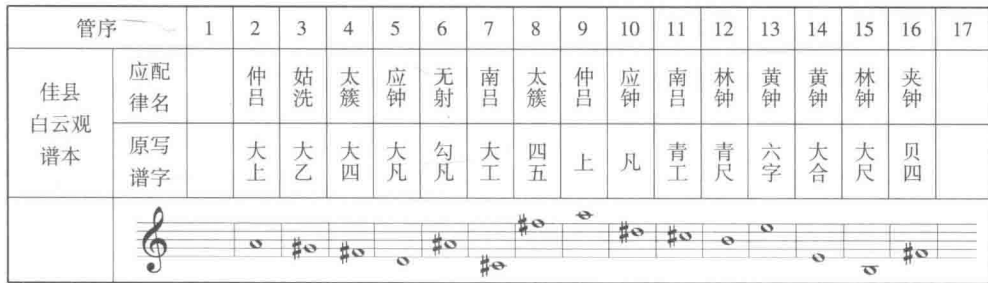 管序 1 2 3 4 5 6 7 8 9 10 11 12 13 14 15 16 17
佳县白云观谱本 应配律名 仲吕 姑洗 太簇 应钟 无射 南吕 太簇 仲吕 应钟 南吕 林钟 黄钟 黄钟 林钟 夹钟
原写谱字 大上 大乙 大四 大凡 勾凡 大工 四五 上 凡 青工 青尺 六字 大合 大尺 贝四